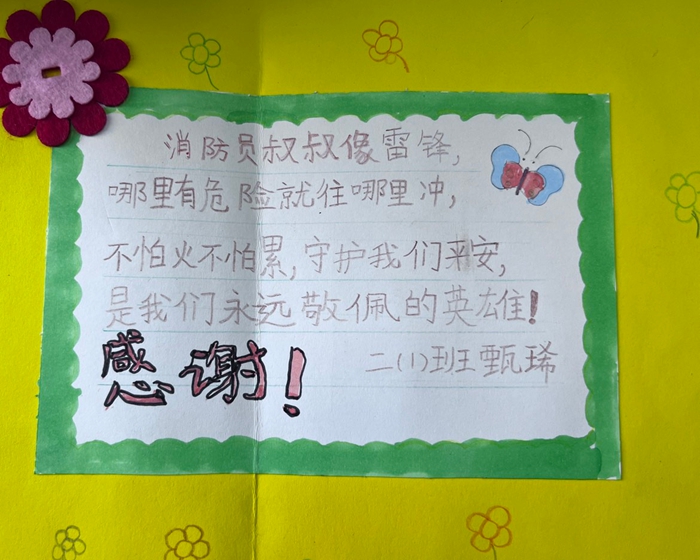 消防员叔叔像雷锋,
哪里有危险就往哪里冲,
不怕火不怕累,守护我们平安,
是我们永远敬佩的英雄!
感谢!
二(1)班甄琋